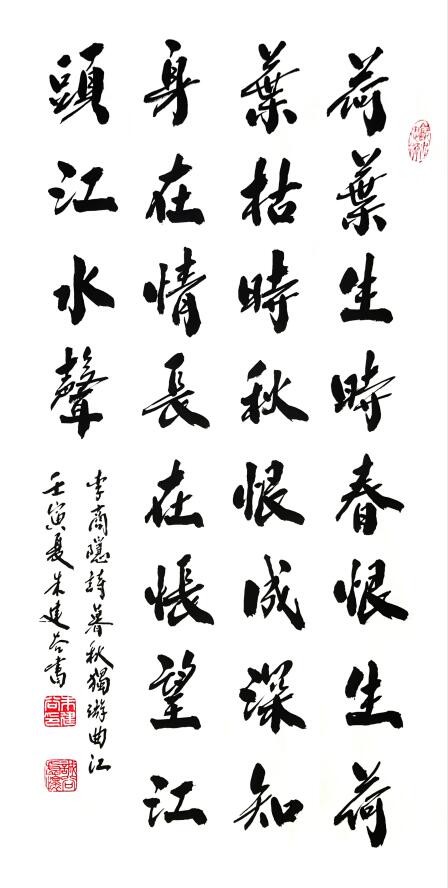 荷葉生時春恨生荷
葉枯時秋恨成深知
身在情長在悵望江
頭江水聲
李商隱詩暮秋獨游曲江
壬寅夏朱建書